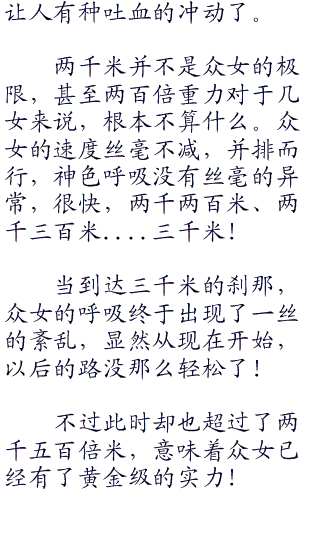 让人有种吐血的冲动了。
两千米并不是众女的极
限，甚至两百倍重力对于几
女来说，根本不算什么。众
女的速度丝毫不减，并排而
行，神色呼吸没有丝毫的异
常，很快，两千两百米、两
千三百米....三千米！
当到达三千米的刹那，
众女的呼吸终于出现了一丝
的紊乱，显然从现在开始，
以后的路没那么轻松了！
不过此时却也超过了两
千五百倍米，意味着众女已
经有了黄金级的实力！